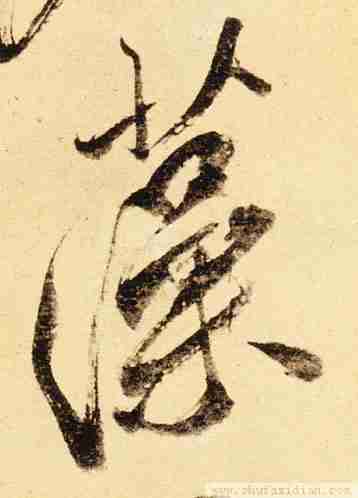 藻
www.shufazidian.com